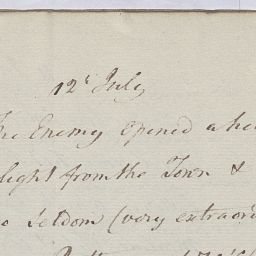 12th July
The Enemy opened a he
light from the Town &
o seldom (very extraor